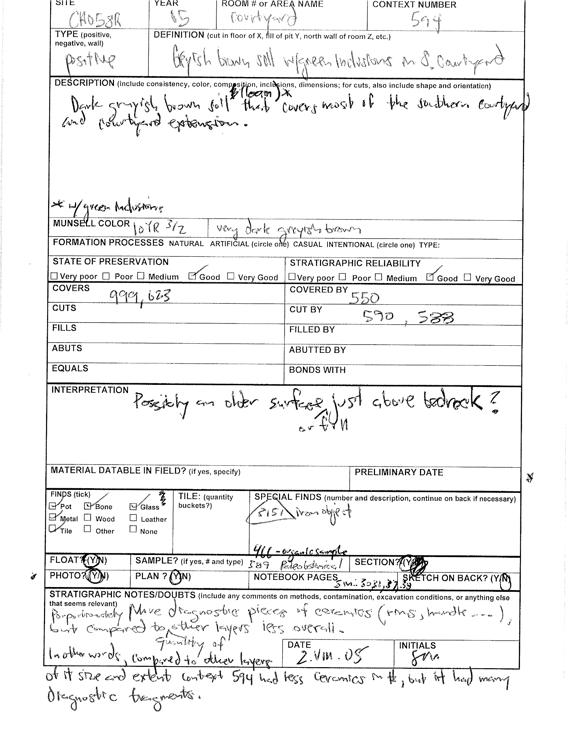 SITE YEAR ROOM # or AREA NAME CONTEXT NUMBER
CH05JR 05 courtyard 594
TYPE (positive, negative, wall) DEFINITION (cut in floor of X, fill of pit Y, north wall of room Z, etc.)
positive Greyish brown soil w/green inclusions in S. Courtyard
DESCRIPTION (include consistency, color, composition, inclusions, dimensions; for cuts, also include shape and orientation)
(loam)*
Dark greyish brown soil that covers most of the southern courtyard
and courtyard extension.
* w/green inclusions
MUNSELL COLOR 10YR 3/2 very dark greyish brown
FORMATION PROCESSES NATURAL ARTIFICIAL (circle one) CASUAL INTENTIONAL (circle one) TYPE:
STATE OF PRESERVATION STRATIGRAPHIC RELIABILITY
Very poor Poor Medium Good Very Good Very poor Poor Medium Good Very Good
COVERS 999, 623 COVERED BY 550
CUTS CUT BY 590, 588
FILLS FILLED BY
ABUTS ABUTTED BY
EQUALS BONDS WITH
INTERPRETATION Possibly an older surface just above bedrock?
or fill
MATERIAL DATABLE IN FIELD? (if yes, specify) PRELIMINARY DATE
FINDS (tick) TILE: (quantity buckets?) SPECIAL FINDS (number and description, continue on back if necessary)
Pot Bone Glass
Metal Wood Leather
Tile Other None
iron object
466 - organic sample
FLOAT? (Y/N) SAMPLE? (if yes, # and type) 389 Paleobotanical SECTION? (Y/N)
PHOTO? (Y/N) PLAN? (Y/N) NOTEBOOK PAGES SKETCH ON BACK? (Y/N)
STRATIGRAPHIC NOTES/DOUBTS (include any comments on methods, contamination, excavation conditions, or anything else that seems relevant)
Proportionately More diagnostic pieces of ceramics (rims, handle ---),
but compared to other layers less overall.
Quantity of
In other words, compared to other layers
DATE 2.VIII.05 INITIALS
of it size and extent context 594 had less ceramics in #, but it had many
diagnostic fragments.